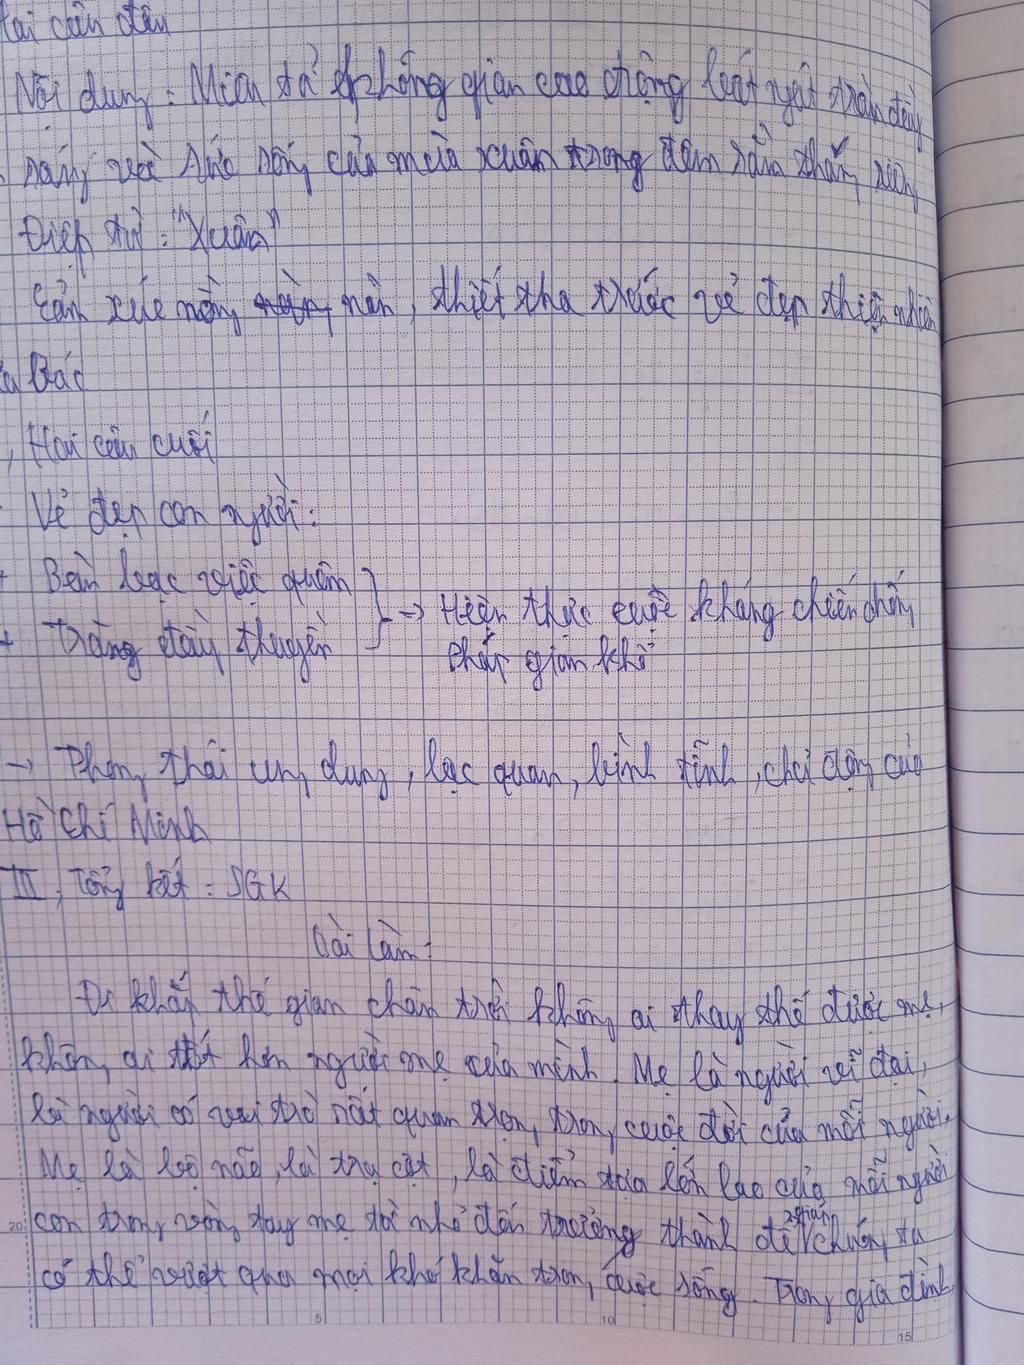 Hai câu đầu
Nội dung: Miêu tả không gian cao rộng bát ngát tràn đầy
sáng và sức sống của mùa xuân trong đêm rằm tháng riêng
Điệp từ: "Xuân"
Cảm xúc nồng nàn, thiết tha trước vẻ đẹp thiên nhiên
Bác
Hai câu cuối
Vẻ đẹp con người:
+ Bàn bạc việc quân
→ Hiện thực cuộc kháng chiến chống
+ Trăng đầy thuyền
Pháp gian khổ
→ Phong thái ung dung, lạc quan, bình tĩnh, chủ động của
Hồ Chí Minh
III, Tổng kết: SGK
Bài làm:
Đi khắp thế gian chân trời không ai thay thế được mẹ,
không ai tốt hơn người mẹ của mình. Mẹ là người vĩ đại,
là người có vai trò rất quan trọng trong cuộc đời của mỗi người.
Mẹ là bộ não, là trụ cột, là điểm tựa lớn lao của mỗi người
20 con trong vòng tay mẹ từ nhỏ đến trưởng thành để chúng ta
có thể vượt qua mọi khó khăn trong cuộc sống. Trong gia đình
5 10 15